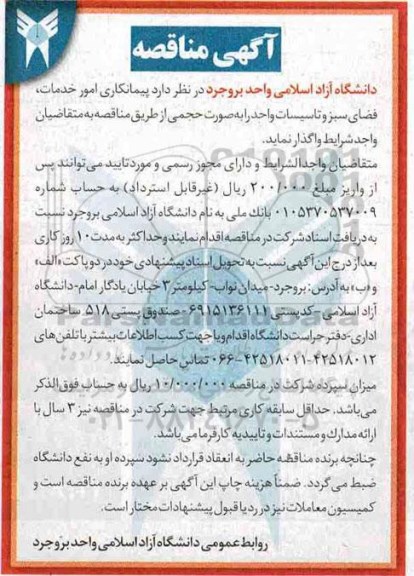 آگهی مناقصه
دانشگاه آزاد اسلامی واحد بروجرد در نظر دارد پیمانکاری امور خدمات،
فضای سبز و تاسیسات واحد را به صورت حجمی از طریق مناقصه به متقاضیان
واجد شرایط واگذار نماید.
متقاضیان واجد الشرایط و دارای مجوز رسمی و مورد تایید می توانند پس
از واریز مبلغ ۲۰۰/۰۰۰ ریال (غیرقابل استرداد) به حساب شماره
۰۱۰۵۳۷۰۵۳۷۰۰۹ بانک ملی به نام دانشگاه آزاد اسلامی بروجرد نسبت
به دریافت اسناد شرکت در مناقصه اقدام نمایند و حداکثر به مدت ۱۰ روز کاری
بعد از درج این آگهی نسبت به تحویل اسناد پیشنهادی خود در دو پاکت «الف»
و «ب» به آدرس: بروجرد-میدان نواب-کیلومتر ۳ خیابان یادگار امام-دانشگاه
آزاد اسلامی - کدپستی ۶۹۱۵۱۳۶۱۱۱ - صندوق پستی ۵۱۸ ساختمان
اداری-دفتر حراست دانشگاه اقدام و یا جهت کسب اطلاعات بیشتر با تلفن های
۴۲۵۱۸۰۱۲-۴۲۵۱۸۰۱۱-۰۶۶ تماس حاصل نمایند.
میزان سپرده شرکت در مناقصه ۱۰/۰۰۰/۰۰۰ ریال به حساب فوق الذکر
می باشد. حداقل سابقه کاری مرتبط جهت شرکت در مناقصه نیز ۳ سال با
ارائه مدارک و مستندات و تاییدیه کارفرما می باشد.
چنانچه برنده مناقصه حاضر به انعقاد قرارداد نشود سپرده او به نفع دانشگاه
ضبط می گردد. ضمناً هزینه چاپ این آگهی بر عهده برنده مناقصه است و
کمیسیون معاملات نیز در رد یا قبول پیشنهادات مختار است.
روابط عمومی دانشگاه آزاد اسلامی واحد بروجرد